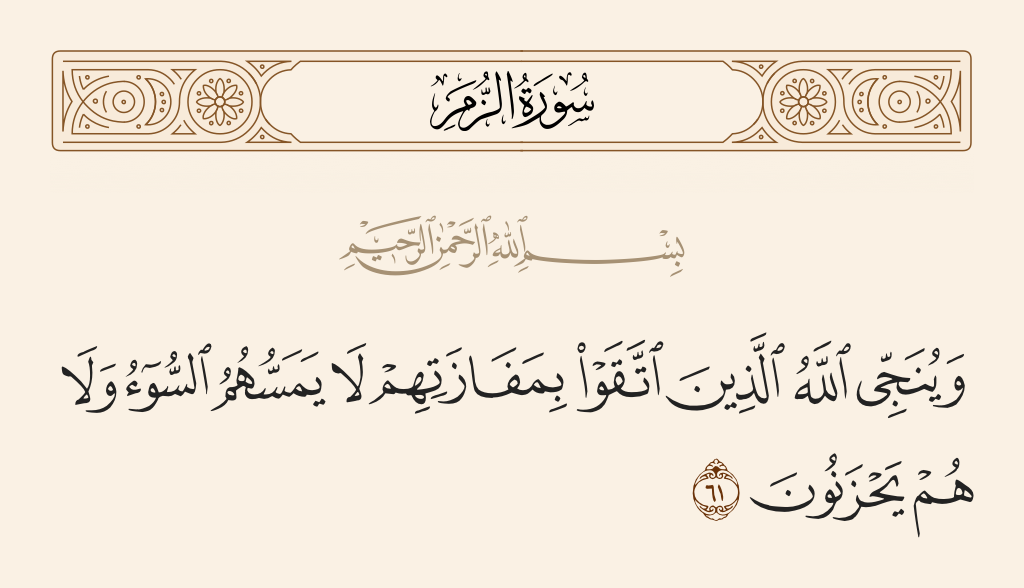 سُورَةُ الزُّمَرِ
بِسْمِ ٱللَّهِ ٱلرَّحْمَٰنِ ٱلرَّحِيمِ
وَيُنَجِّى ٱللَّهُ ٱلَّذِينَ ٱتَّقَوْا۟ بِمَفَازَتِهِمْ لَا يَمَسُّهُمُ ٱلسُّوٓءُ وَلَا
هُمْ يَحْزَنُونَ ٦١